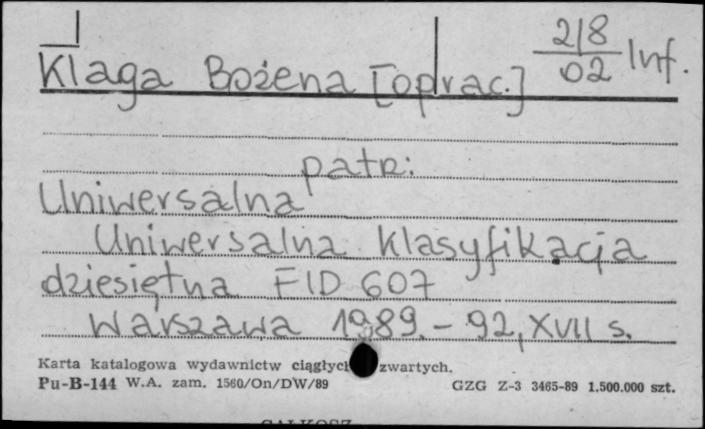 218
Klaga Bożena [oprac.] 02 Inf.
patr:
Uniwersalna
Uniwersalna klasyfikacja
dziesiętna FID 607
Warszawa 1989.-92, XVII s.
Karta katalogowa wydawnictw ciągłych zwartych.
Pu-B-144 W.A. zam. 1560/On/DW/89 GZG Z-3 3465-89 1.500.000 szt.